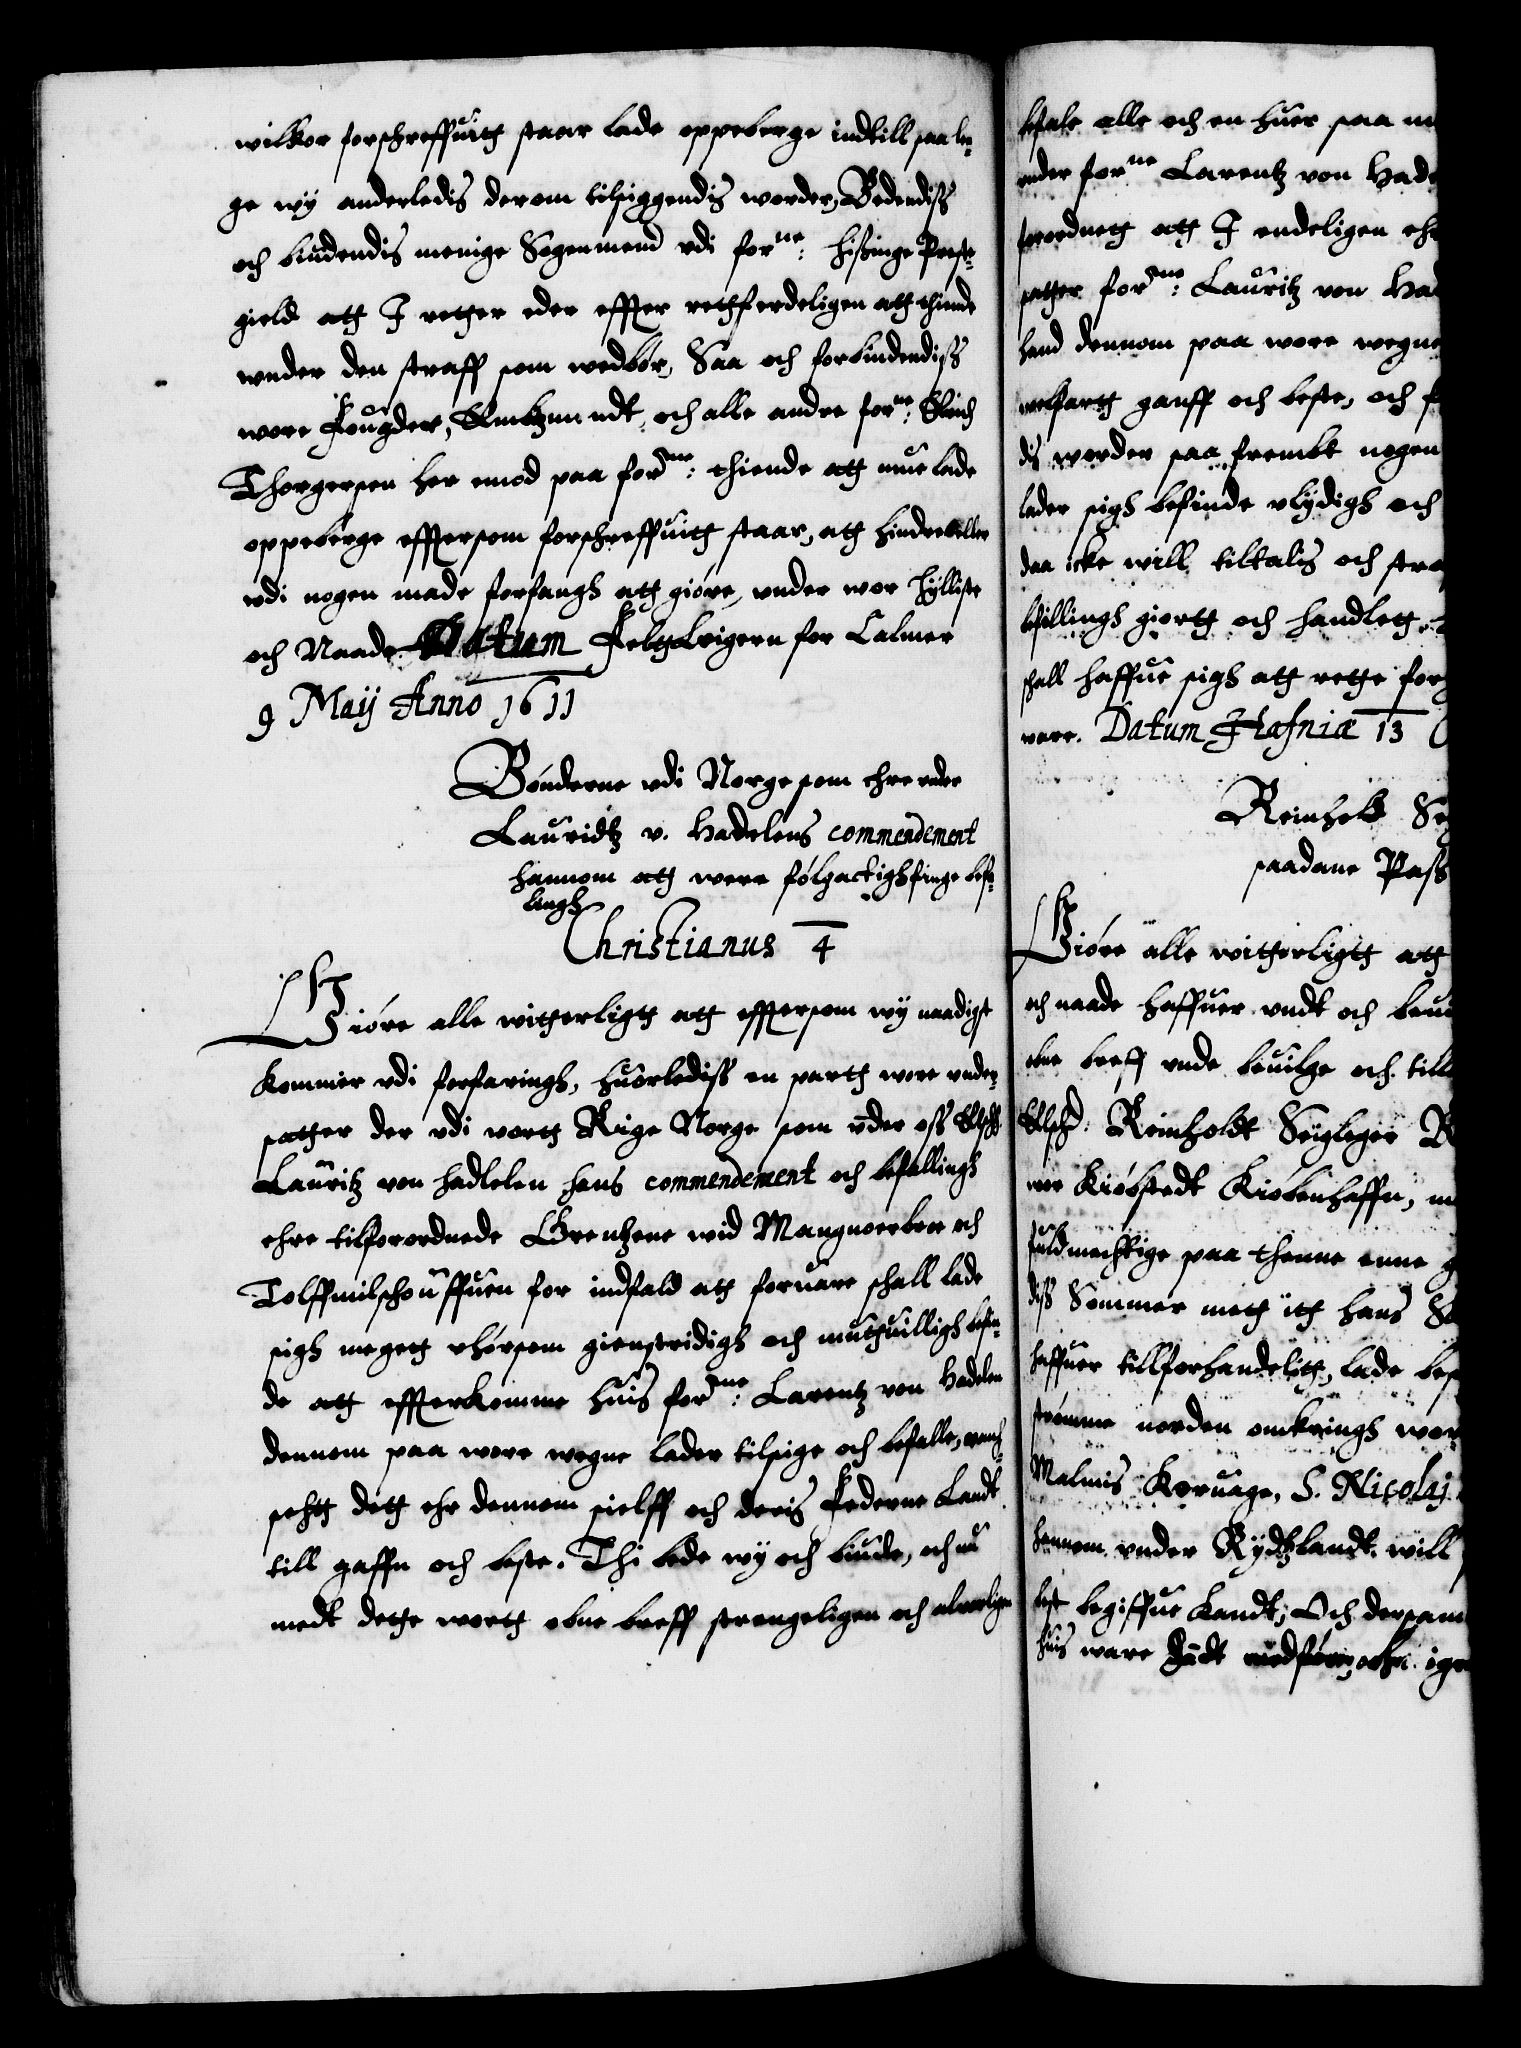 wilkor forschreffuitt staar lade oppeberge indtill saa len¬
ge wij anderledis derom tilsiggendis worder, Bedendiss
och biudendis menige Sogenmend vdi forne: hisinge Preste¬
gield att I retter eder effter rettferdeligen att thiende
wnder den straff som wedbør, Saa och forbiudendiss
wore Fougder, Embtzmendt, och alle andre forne: Erich
Thorgersen her emod paa forne: thiende att mue lade
oppeberge effttersom forschreffuitt staar, att hindre eller
vdi nogen made forfangh att giøre, vnder wor hylliste
och Naade Datum Feltleigern for Calmer
9 Maij Anno 1611
Bønderne vdi Norge som ehre vnder
Lauridtz v. Hadelens commendement
hannom att were følgactigh finge befa¬
lingh
Christianus 4
Giøre alle witterligtt att effttersom wij naadigst
kommer vdi forfaringh, huorlediss en partt wore vnder¬
satter der vdi wortt Rige Norge som vnder oss Elsch
Lauritz von hadelen hans commendement och befallingh
ehre tilforordnede Grentzene wid Mangnoerbroe och
Tolffmilschouffuen for indfald att foruare schall lade
sigh megett vhørsom gienstridigh och muthuilligh befin¬
de att effterkomme huis forne: Larentz von Hadelen
dennom paa wore wegne lader tilsige och befalle, wansch
sehtt dett ehr dennom sielff och deris Federne Landt
till gaffn och beste. Thi bede wij och biude, och nu
medt dette wortt obne breff strengeligen och aluorligen
befale alle och en huer saa m
vnder forne Larentz von Hade
forordnett att I endeligen eh
satter forne: Lauritz von Had
hand dennom paa wore wegne
welfartt gauff och beste, och f
dis worder saa frembt nogen
lader sigh befinde vlydigh och
daa icke will tiltalis och stra
befillingh giortt och handlett,
schall haffue sigh att rette for
ware. Datum Hafniæ 13
Reinholt Se
saadane Pass
Giøre alle witterligtt att
och naade haffuer vndt och beui
obne breff vnde beuilge och till
Elsch: Reinholdt Seigleger B
wor Kiøbstedt Kiøbenhaffn, m
fuldmechtige paa thenne enne g
diss Sommer mett itt hans S
haffuer tillforhandelitt, lade bes
strømme norden omkringh wor
Malmis Koruage, S. Nicolaj
hannom vnder Rydtzlandt will
best begiffue kandt, Och dersam
huis ware handt medfører, ighe